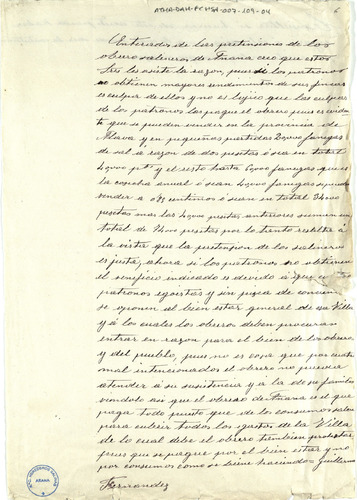 ATHA-DAH-FCHSA-007-109-04
6
Enterados de las pretensiones de los
obreros salineros de Añana creo que estos
tres les asiste la razon, pues si los patronos
no obtienen mayores rendimientos de sus fincas
es culpa de ellos y no es lojico que las culpas
de los patronos las pague el obrero pues es evidente
que se pueden vender en la provincia de
Alava y en pequeñas partidas 20,000 fanegas
de sal á razon de dos pesetas ó sea en total
40,000 pts y el resto hasta 60,000 fanegas que es
la cosecha anual ó sean 40,000 fanegas se pueden
vender a 0,85 centimos ó sean en total 34,000
pesetas mas las 40,000 pesetas anteriores suman un
total de 74,000 pesetas por lo tanto resalta á
la vista que la pretension de los salineros
es justa, ahora si los patronos no obtienen
el beneficio indicado es devido á que
patronos egoistas y sin pizca de conciencia
se oponen al bien estar general de esa Villa
y á los cuales los obreros deben procurar
entrar en razon para el bien de los obreros
y del pueblo, pues no es cosa que por cuatro
mal intencionados el obrero no pueda
atender á su susistencia y á la de su familia
viendolo asi que el obrero de Añana es el que
paga todo puesto que de los consumos salen
para cubrir todos los gastos de la Villa
de lo cual debe el obrero tambien protestar
pues que se pague por el bien estar y no
por consumos como se viene haciendo = Guillermo
Fernandez
ARAÑA